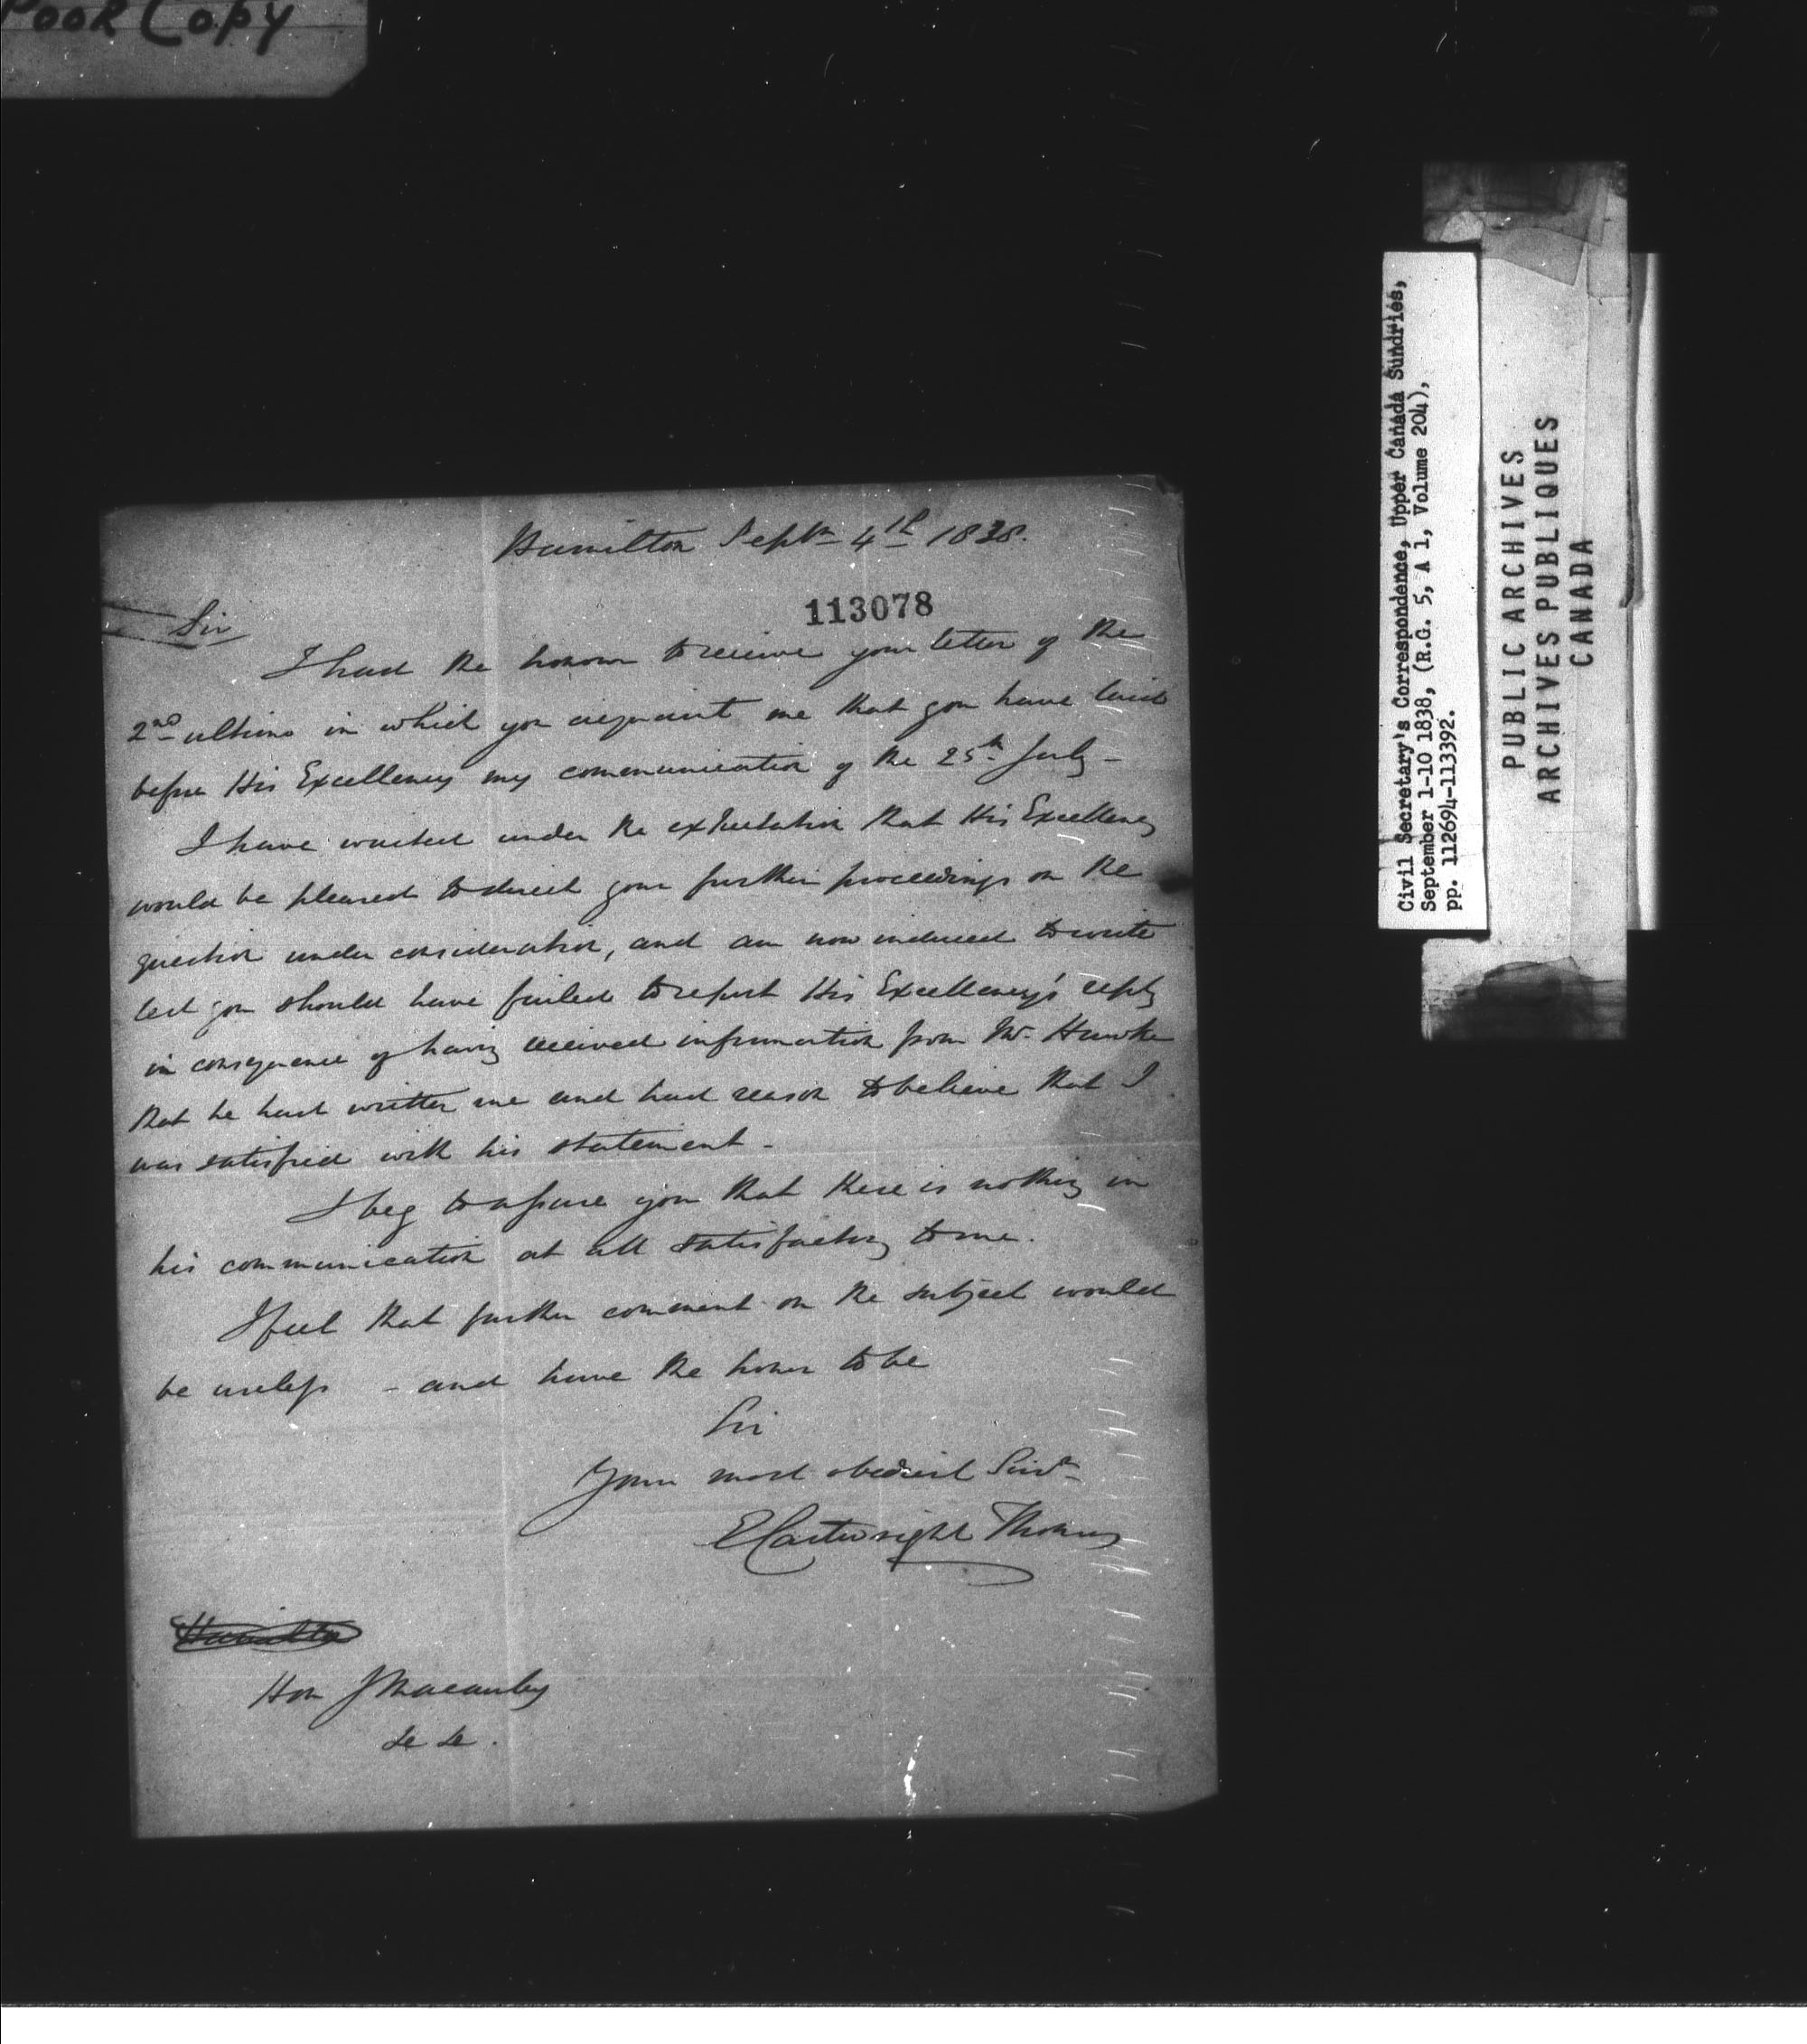 Poor Copy
Hamilton Septr 4th 1838.
113078
Sir
I had the honour to receive your letter of the
2nd ultimo in which you acquaint me that you have laid
before His Excellency my communication of the 25th July -
I have waited under the expectation that His Excellency
would be pleased to direct your further proceedings on the
question under consideration, and am now induced to write
lest you should have failed to report His Excellency's reply
in consequence of having received information from Mr. Hawke
that he had written me and had reason to believe that I
was satisfied with his statement -
I beg to assure you that there is nothing in
his communication at all satisfactory to me.
I feel that further comment on the subject would
be useless - and have the honor to be
Sir
Your most obedient Servt
E Cartwright Thomas
Hamilton
Hon J Macaulay
&c &c.
Civil Secretary's Correspondence, Upper Canada Sundries,
September 1-10 1838, (R.G. 5, A 1, Volume 204),
pp. 112694-113392.
PUBLIC ARCHIVES
ARCHIVES PUBLIQUES
CANADA